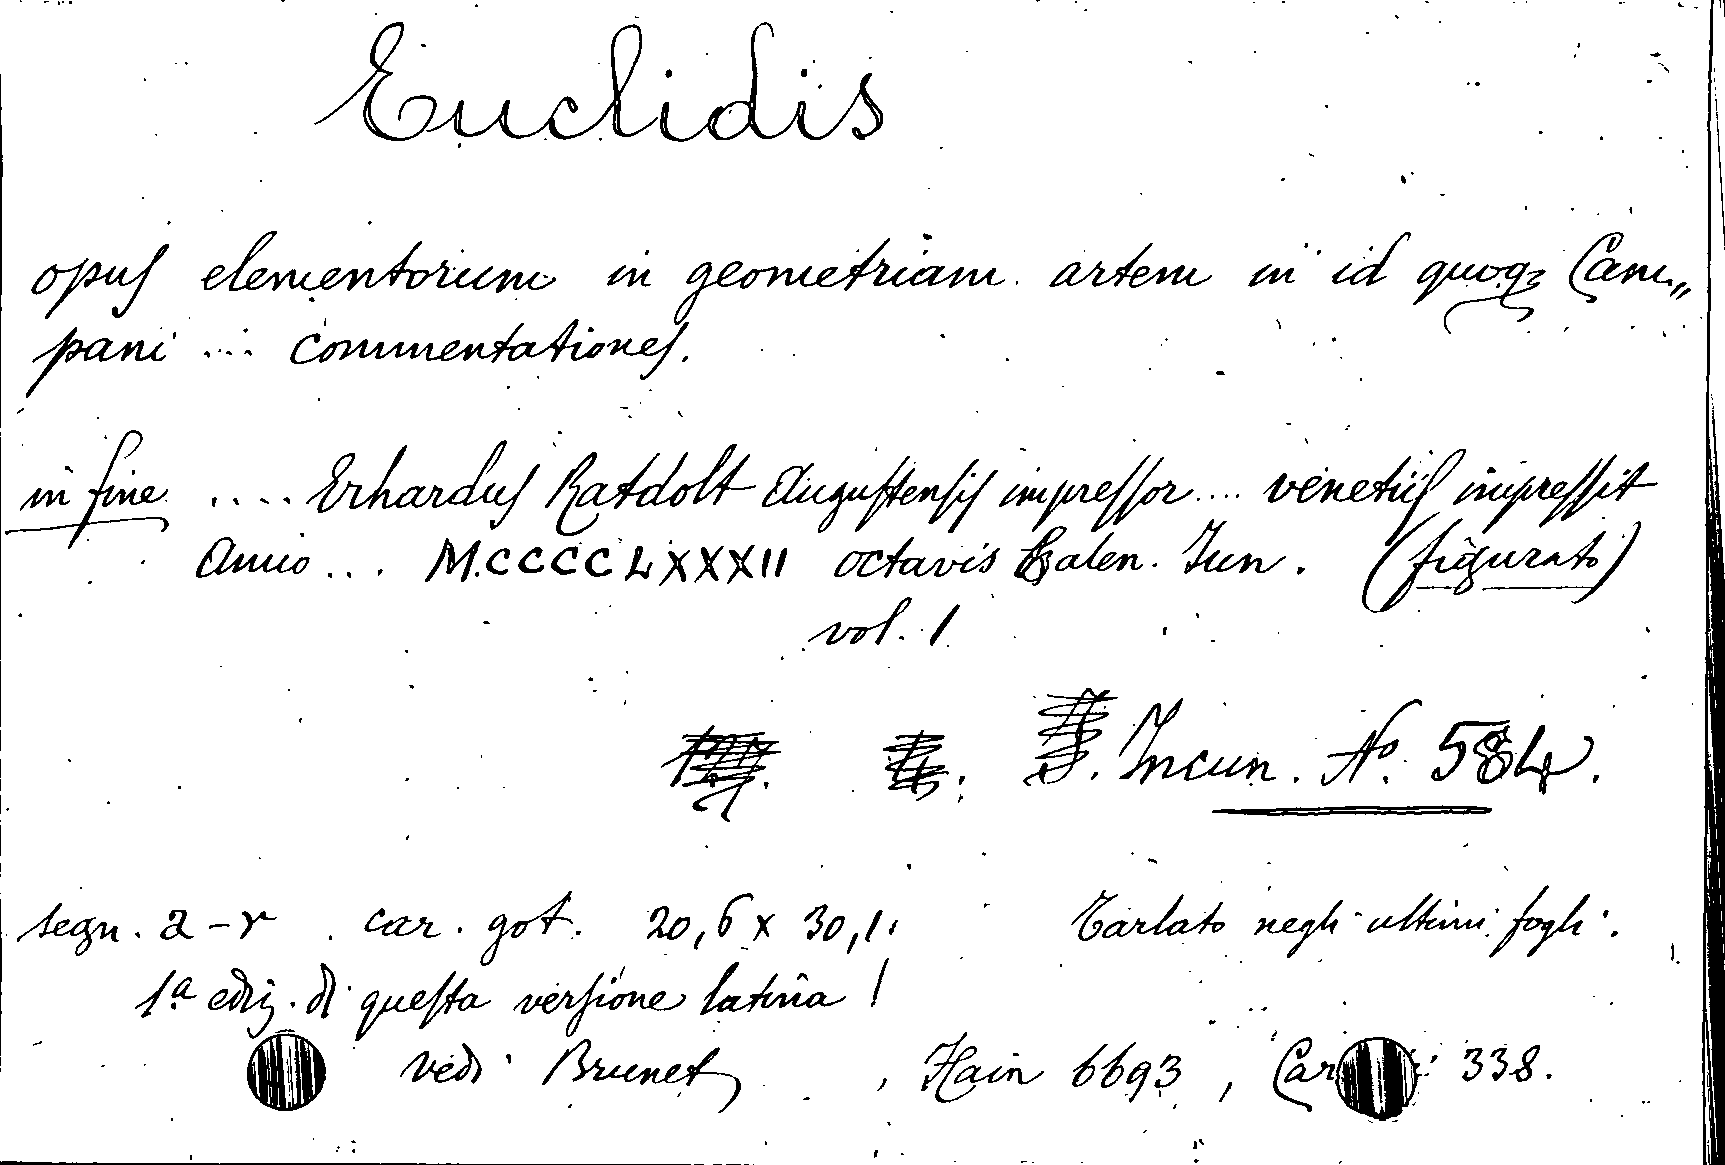 Euclidis
opus elementorum in geometriam artem in id quoqꝫ Cam„
pani ... commentationes.
in fine .... Erhardus Ratdolt Augustensis impressor .... venetiis impressit
Anno ... M.CCCCLXXXII octavis Calen. Jun. (figurato)
vol. 1
Incun. No. 584.
segn. a-r car. got. 20,6 x 30,1. Tarlato negli ultimi fogli.
1a ediz. di questa versione latina!
vedi Brunet, Hain 6693, 338.